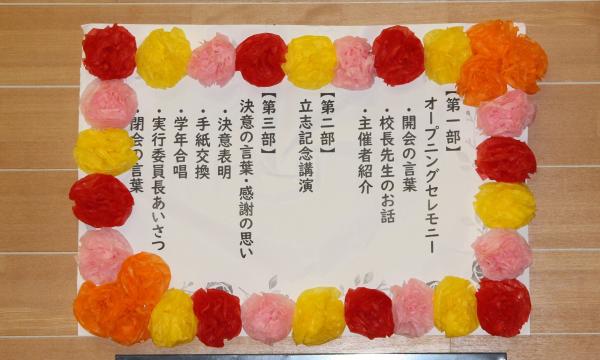 【第一部】
オープニングセレモニー
・開会の言葉
・校長先生のお話
・主催者紹介
【第二部】
立志記念講演
【第三部】
決意の言葉・感謝の思い
・決意表明
・手紙交換
・学年合唱
・実行委員長あいさつ
・閉会の言葉